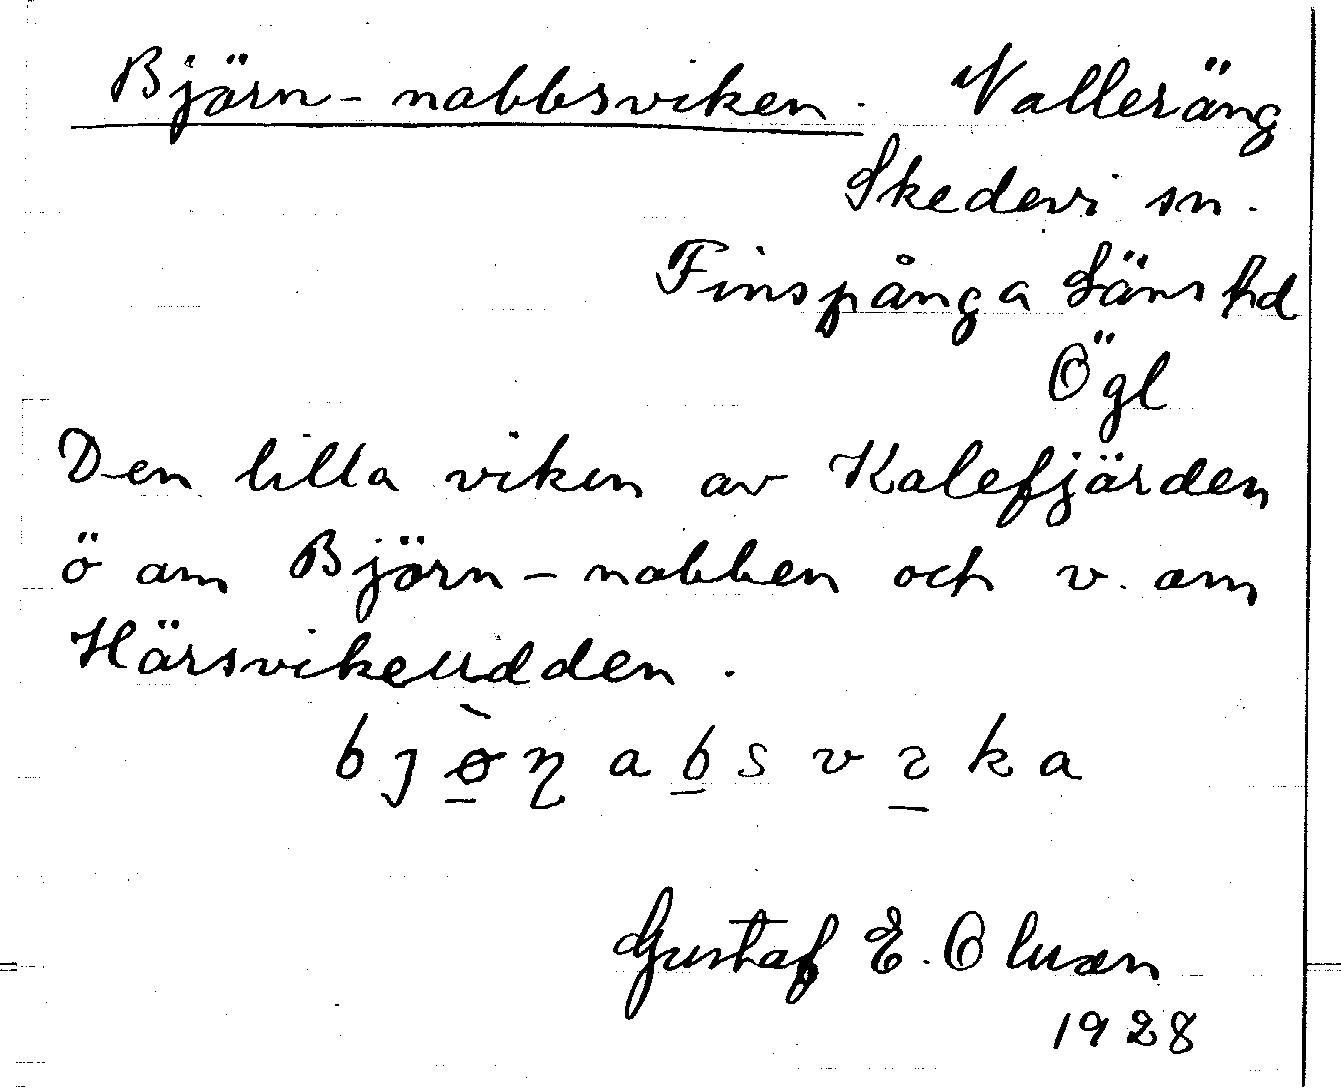 Björn-nabbsviken. Valleräng
Skedevi sn.
Finspånga Läns hd
Ögl
Den lilla viken av Kalefjärden
ö om Björn-nabben och v. om
Härsvikeudden.
bjö̀ṇabsvıka
Gustaf E.
1928